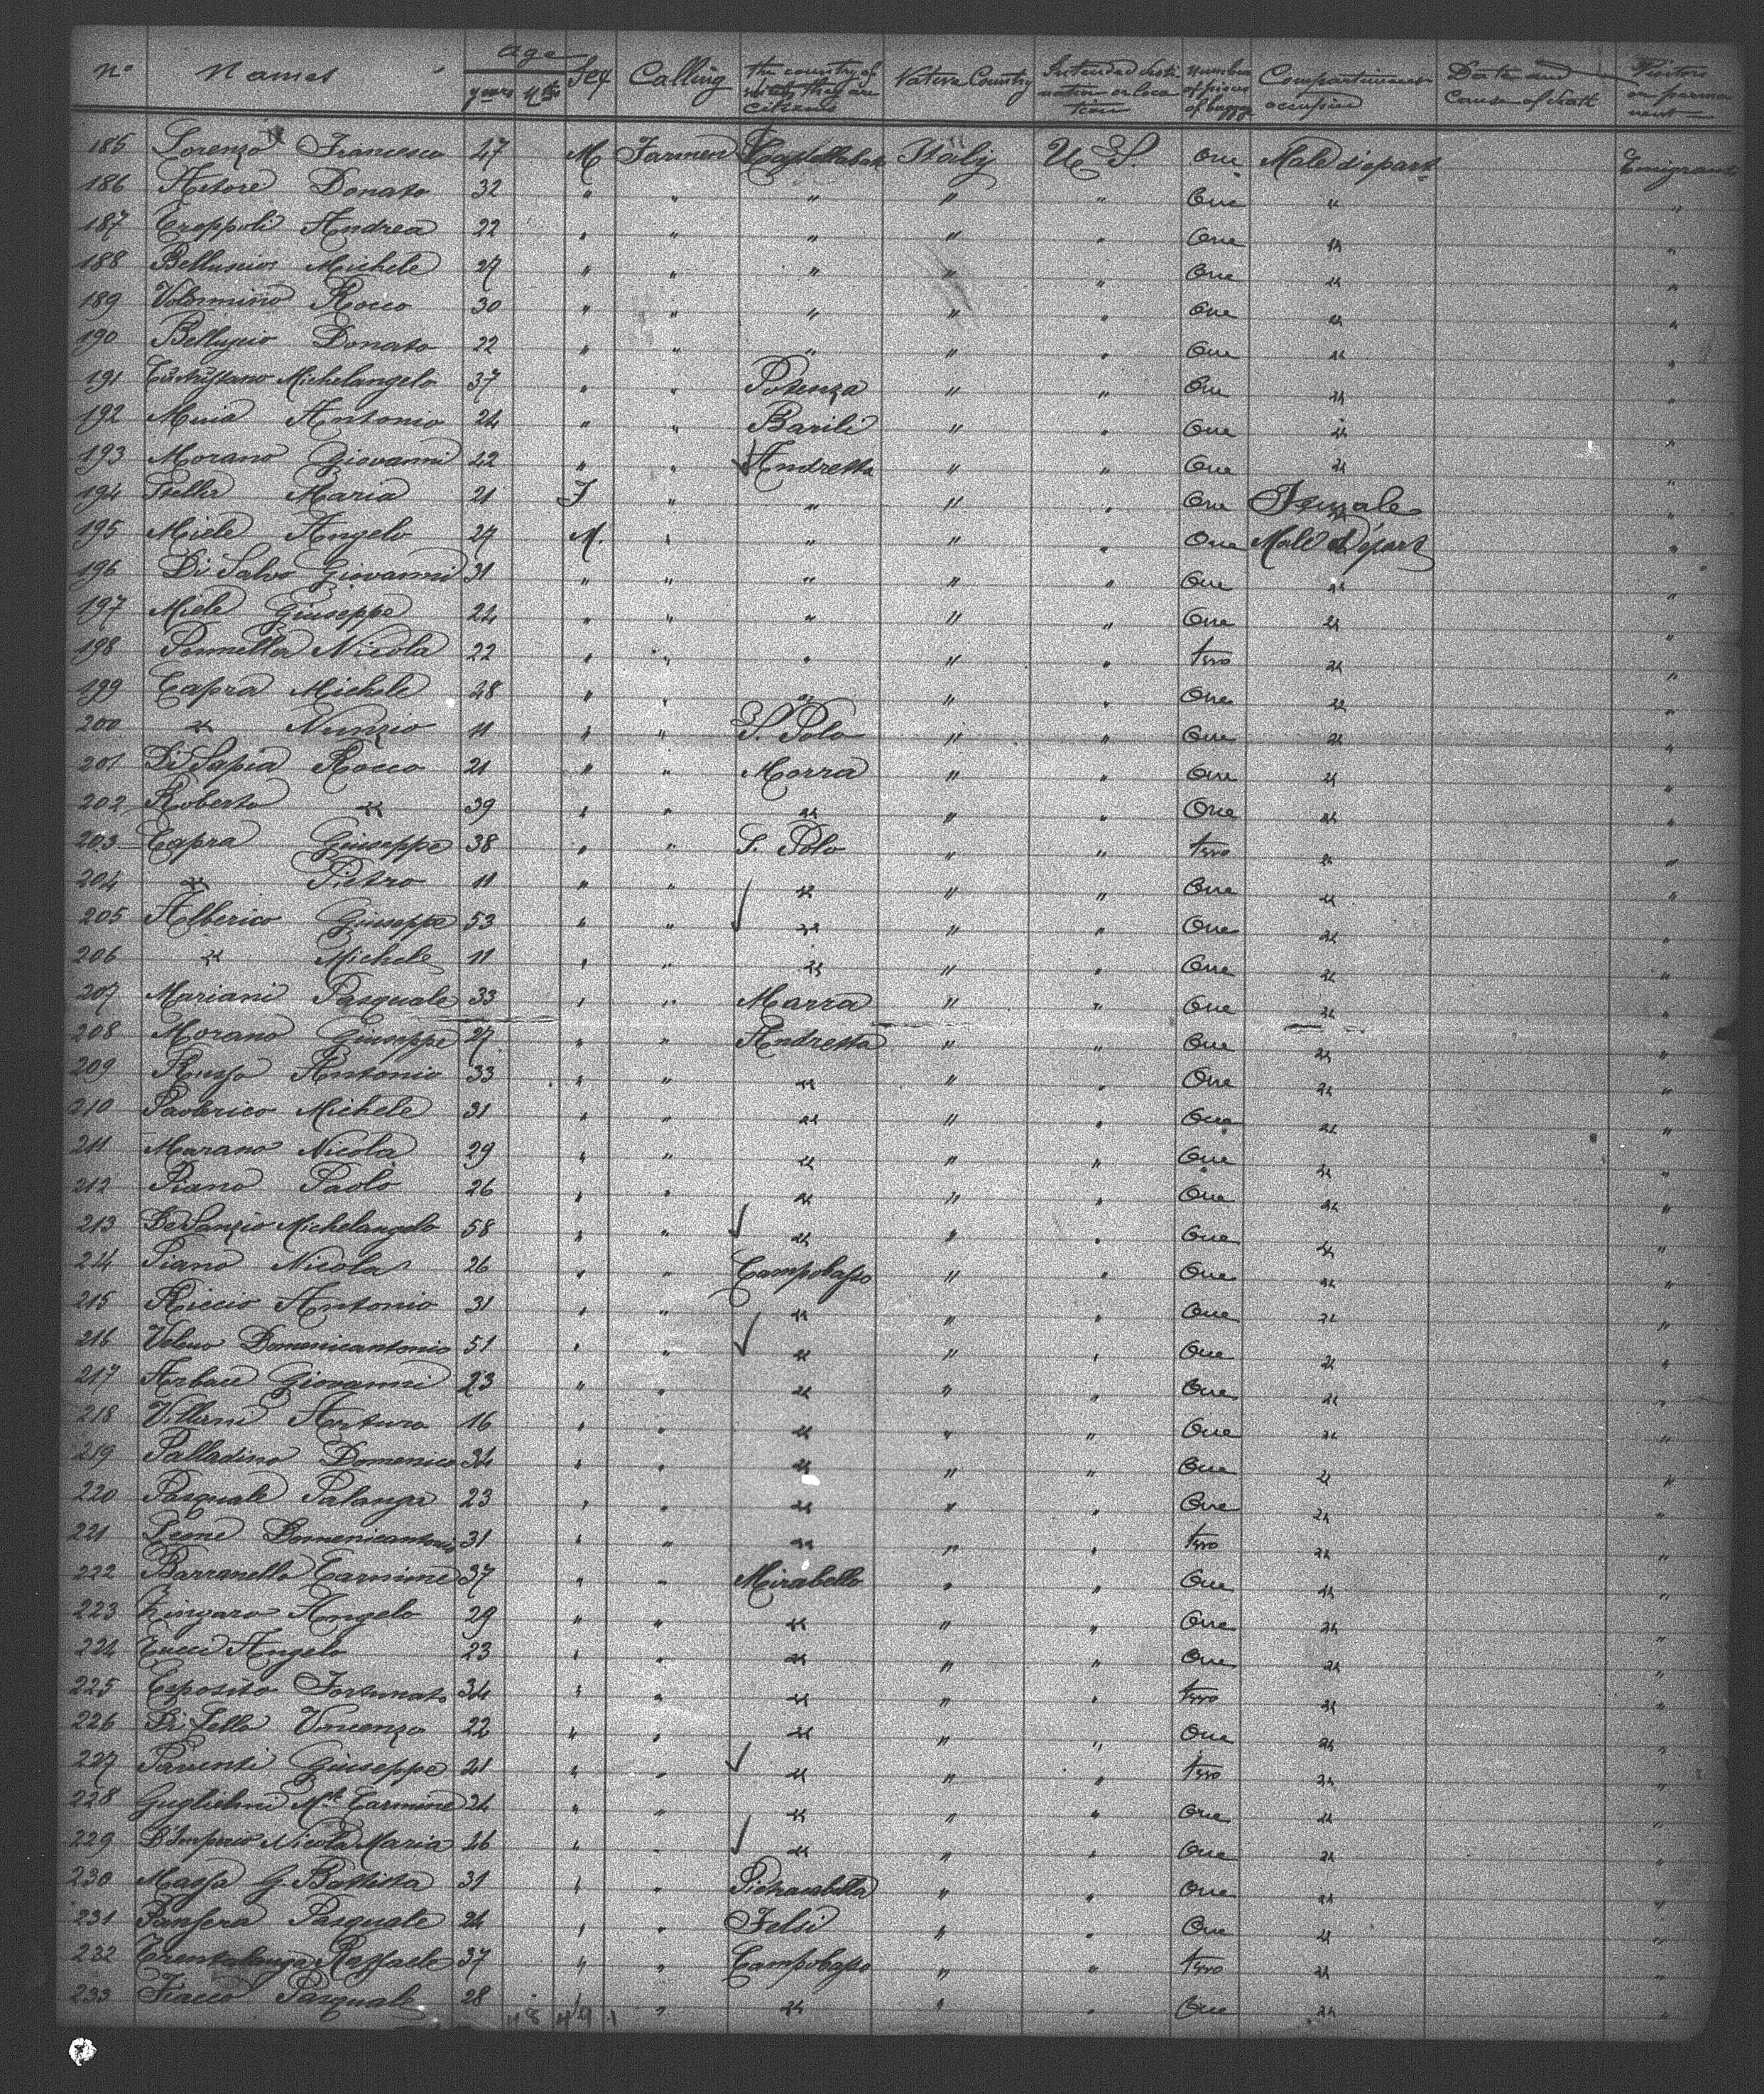 No Names Age years Sex Calling the country of which they are citizens Native Country Intended desti nation or loca tion Number of pieces of bagg Compartment occupied Date and Cause of death or perma nent
185 Lorenzo Francesco 27 M Farmer Italy U.S. One Male d'epart Emigrant
186 Donato 32 " " " " " One " "
187 Andrea 22 " " " " " One " "
188 Belluscio Michele 27 " " " " " One " "
189 Rocco 30 " " " " " One " "
190 Donato 22 " " " " " One " "
191 Michelangelo 37 " " Potenza " " One " "
192 Muia Antonio 24 " " Barili " " One " "
193 Morano Giovanni 22 " " Andretta " " One " "
194 Maria 21 F " " " " One "
195 Miele Angelo 27 M. " " " " One Male D'épart "
196 Di Salvo Giovanni 31 " " " " " One " "
197 Miele Giuseppe 24 " " " " " One " "
198 Pennella Nicola 22 " " " " " two " "
199 Capra Michele 48 " " " " " One " "
200 " Nunzio 11 " " S. Polo " " One " "
201 Di Sapia Rocco 21 " " Morra " " One " "
202 Roberto " 39 " " " " " One " "
203 Capra Giuseppe 38 " " S. Polo " " two " "
204 " Pietro 11 " " " " " One " "
205 Alberico Giuseppe 53 " " " " " One " "
206 " Michele 11 " " " " " One " "
207 Mariani Pasquale 33 " " Marra " " One " "
208 Morano Giuseppe 27 " " Andretta " " One " "
209 Russo Antonio 33 " " " " " One " "
210 Michele 31 " " " " " One " "
211 Marano Nicola 29 " " " " " One " "
212 Piano Paolo 26 " " " " " One " "
213 Michelangelo 58 " " " " " One " "
214 Piano Nicola 26 " " Campobasso " " One " "
215 Riccio Antonio 31 " " " " " One " "
216 Domenicantonio 51 " " " " " One " "
217 Giovanni 23 " " " " " One " "
218 Villani Arturo 16 " " " " " One " "
219 Palladino Domenico 34 " " " " " One " "
220 Pasquale Palanga 23 " " " " " One " "
221 Leone Domenicantonio 31 " " " " " two " "
222 Barranello Carmine 37 " " Mirabello " " One " "
223 Zingaro Angelo 29 " " " " " One " "
224 Tucci Angelo 23 " " " " " One " "
225 Esposito Fortunato 34 " " " " " two " "
226 Di Lella Vincenzo 22 " " " " " One " "
227 Giuseppe 21 " " " " " two " "
228 Guglielmi Carmine 24 " " " " " One " "
229 Nicola Maria 26 " " " " " One " "
230 Massa G. Battista 31 " " " " One " "
231 Pansera Pasquale 24 " " Jelsi " " One " "
232 Raffaele 37 " " Campobasso " " two " "
233 Fiacco Pasquale 28 " " " " " One " "
48 49 1